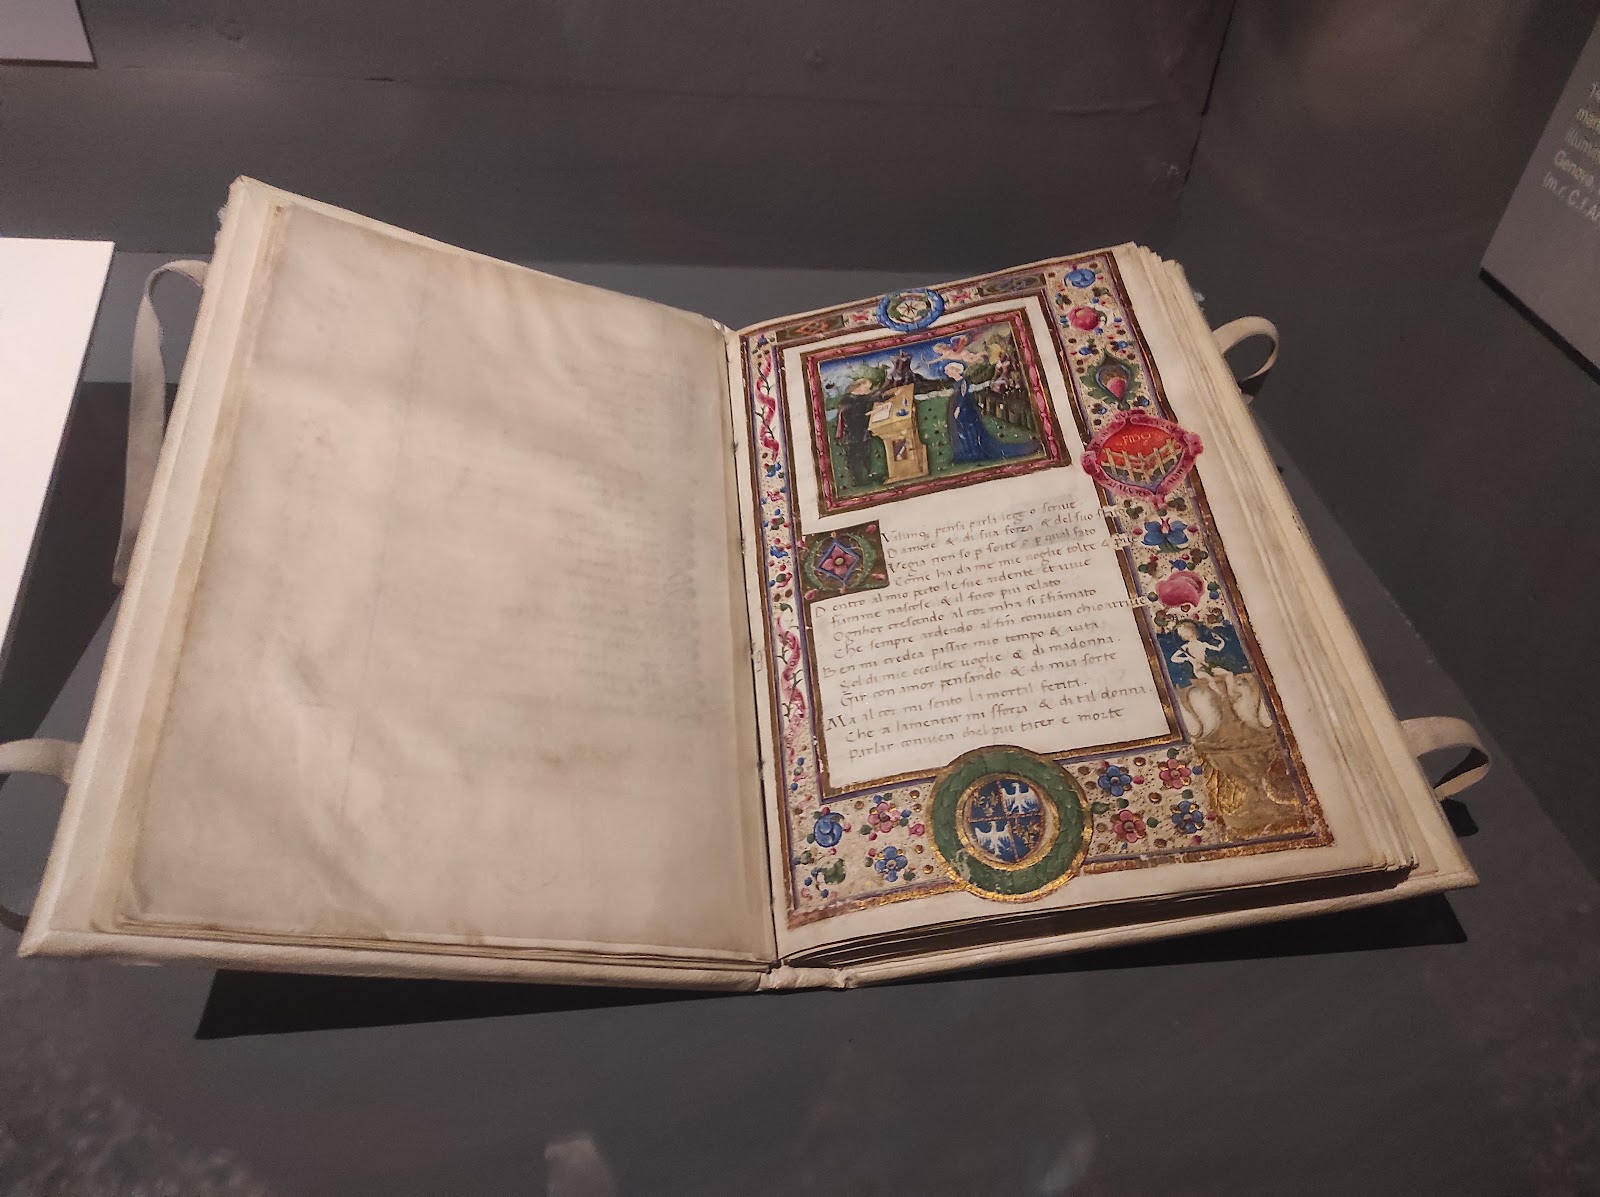 FIDO
Vılunq; pensi parli legg o scriue
D amore & di sua forza & del suo
Vegia non so p sorte o p qual fato
Come ha da me mie uoglie tolte &
D entro al mio pecto le sue ardente et uiue
fiamme nascose & il foco piu celato
Ognhor crescendo al cor mha si
Che sempre ardendo al fin conuien chio arriue
B en mi credea passar mio tempo &
Sol di mie occulte uoglie & di madonna
Gir con amor pensando & di mia sorte
M a al cor mi sento la mortal ferita.
Che a lamentar mi sforza & di tal donna.
Parlar conuien chel piu tacer e morte
Genova,
(m.r. C.f.Ar